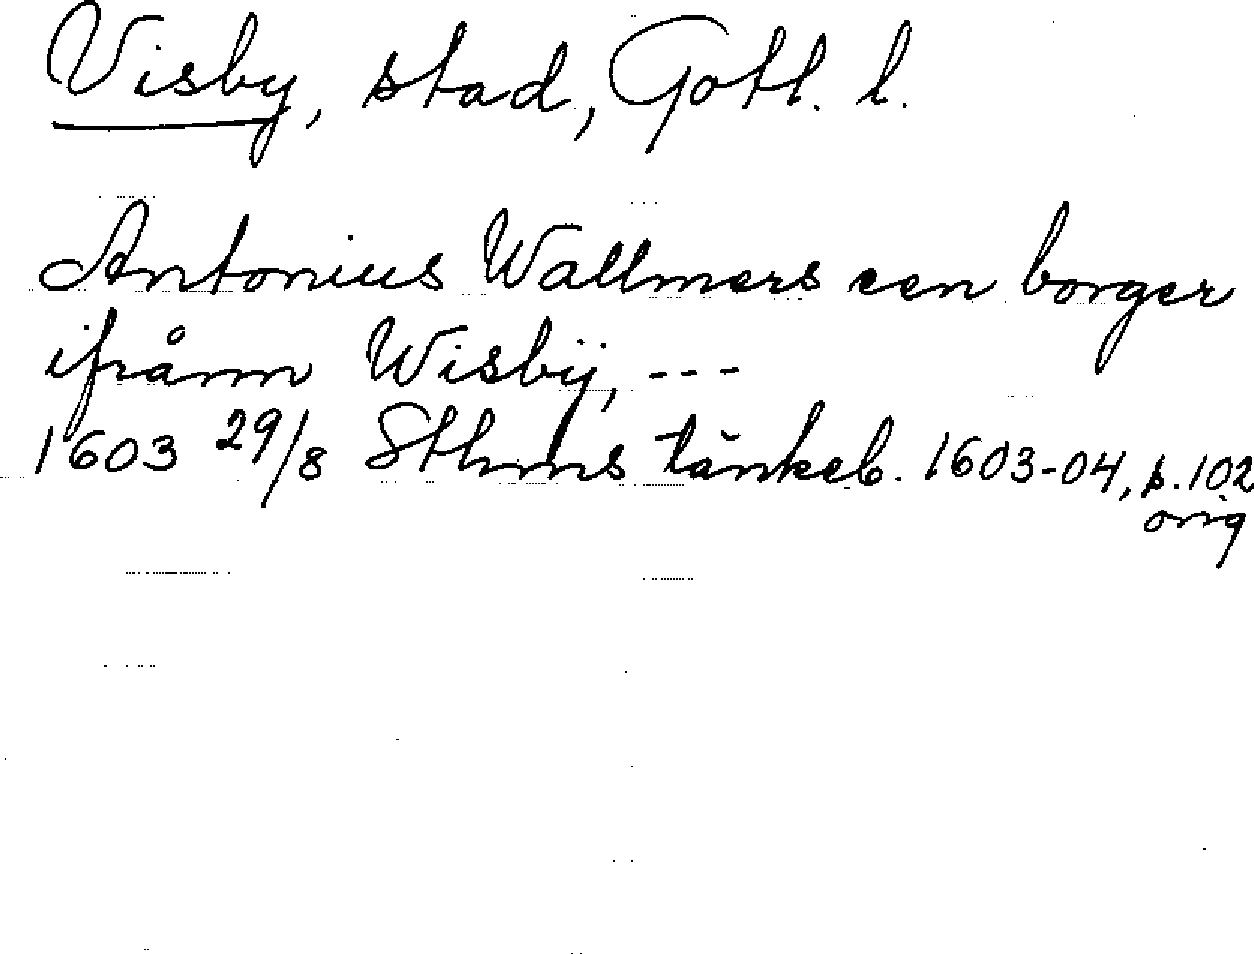 Visby, stad, Gotl. l.
Antonius Wallmers een borger
ifrånn Wisbÿ, ---
1603 29/8 Sthms tänkeb. 1603-04, s. 102
orig